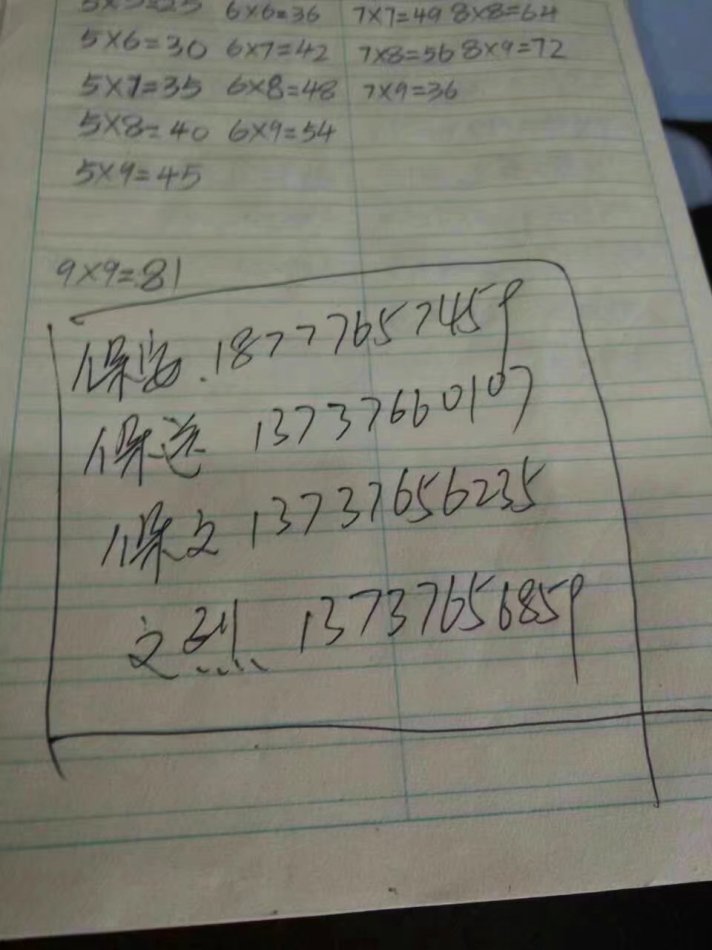 5×5=25 6×6=36 7×7=49 8×8=64
5×6=30 6×7=42 7×8=56 8×9=72
5×7=35 6×8=48 7×9=36
5×8=40 6×9=54
5×9=45
9×9=81
保安.18777657459
保送 13737660107
保文 13737656235
文烈 13737656859